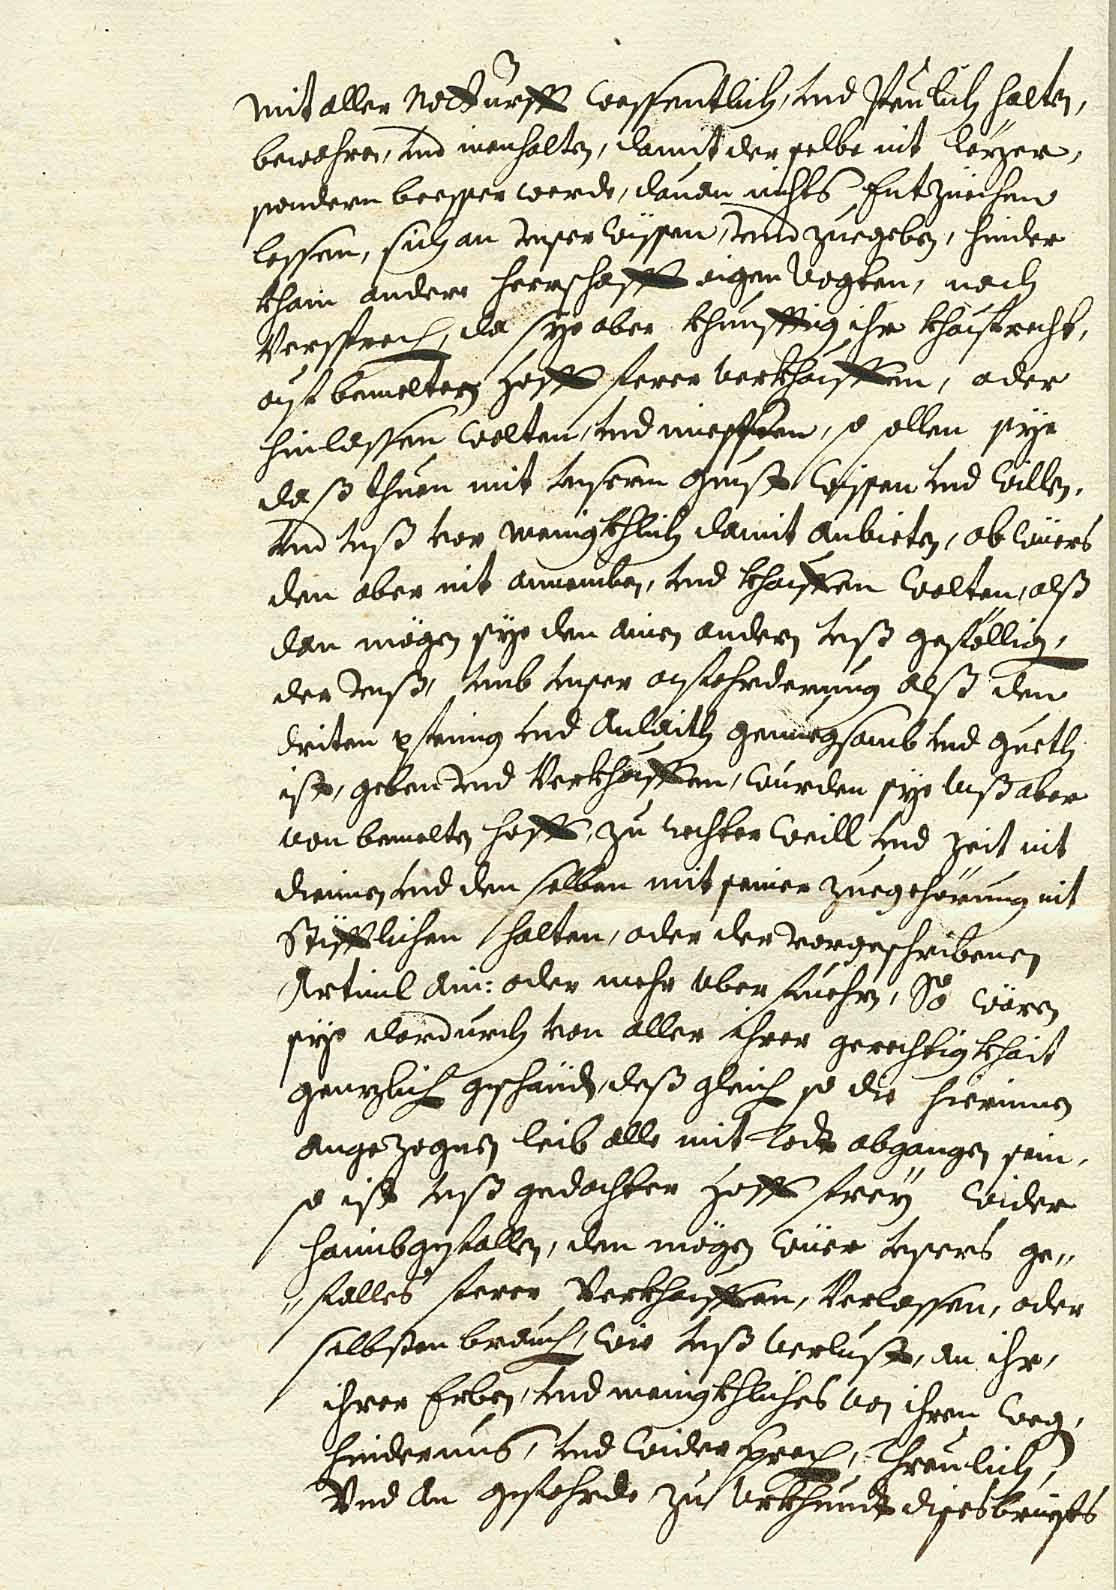 mit aller Notturfft wessentlich, vnd Peulich halten,
bewahren, vnd innenhalten, damit der selbe nit lerzer,
sondern besser werde, dauon nichts Entziechen
lassen, sich an vnser wissen, vnnd zuegeben, hinder
khain andere Herrschafft aigen Vogten, noch
Versprech, da sye aber khunfftig ihr khaufrecht,
auf bemelten Hoff ferer verkhauffen, oder
hinlassen wolten, vnd miessten, so sollen sye
daß thuen mit vnserm gunst wissen vnd willen,
vnd vnß vor menigkhlich damit anbieten, ob wüers
den aber nit annemben, vnd khauffen wolten, alß
dan mögen sye den ainen andern vnß gefellig,
der vnß, vmb vnser erfohrderung alß den
driten pfening vnd Anlaith genuegsamb vnd gueth
ist, geben vnd Verkhauffen, wurden sye vnß aber
von bemelten hoff, zu rechter weill vnd zeit nit
dienen vnd den selben mit seiner zuegehörung nit
Stifftlichen halten, oder der vorgeschribenen
Articul ain: oder mehr vber fuehrn, So wären
sye dardurch von aller ihrer gerechtigkhait
genzlich geschaiden, deß gleich so die hierinnen
angezognen leib alle mit todt abgangen sein,
so ist vnß gedachter Hoff freÿ wider
haimbgefallen, den mögen wüer vnsers ge-
-falles ferer Verkhauffen, Verlassen, oder
selbsten brauch, wie vnß verlust, an ihr,
ihrer Erben, vnd menigkhliches von ihren weg,
hindernus, vnd widersprech, Threulich,
Vnd an gefehrde zu Vrkhundt dises brieffs